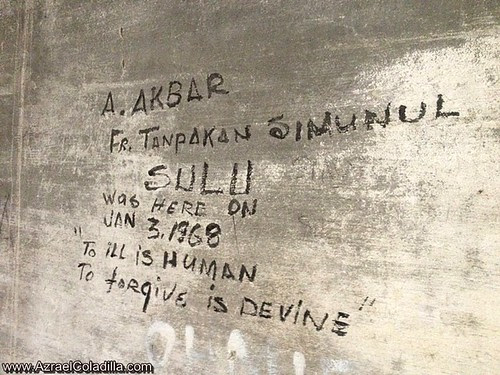 A. AKBAR
FR. TANPAKAN SIMUNUL
SULU
WAS HERE ON
JAN 3. 1968
"TO ILL is HUMAN
TO forgive is DEVINE"
www.AzraelColadilla.com